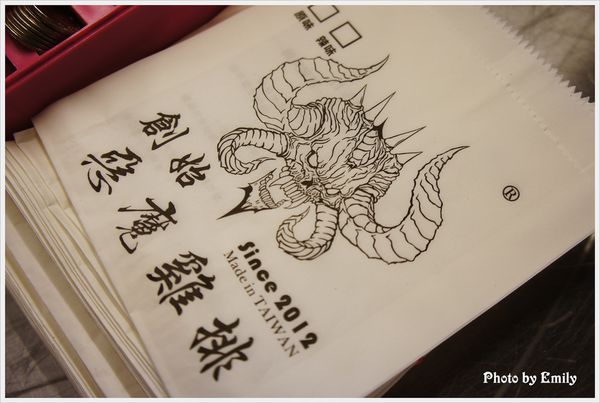 原味 辣味
創始
惡魔雞排
Since 2012
Made in TAIWAN
®
Photo by Emily